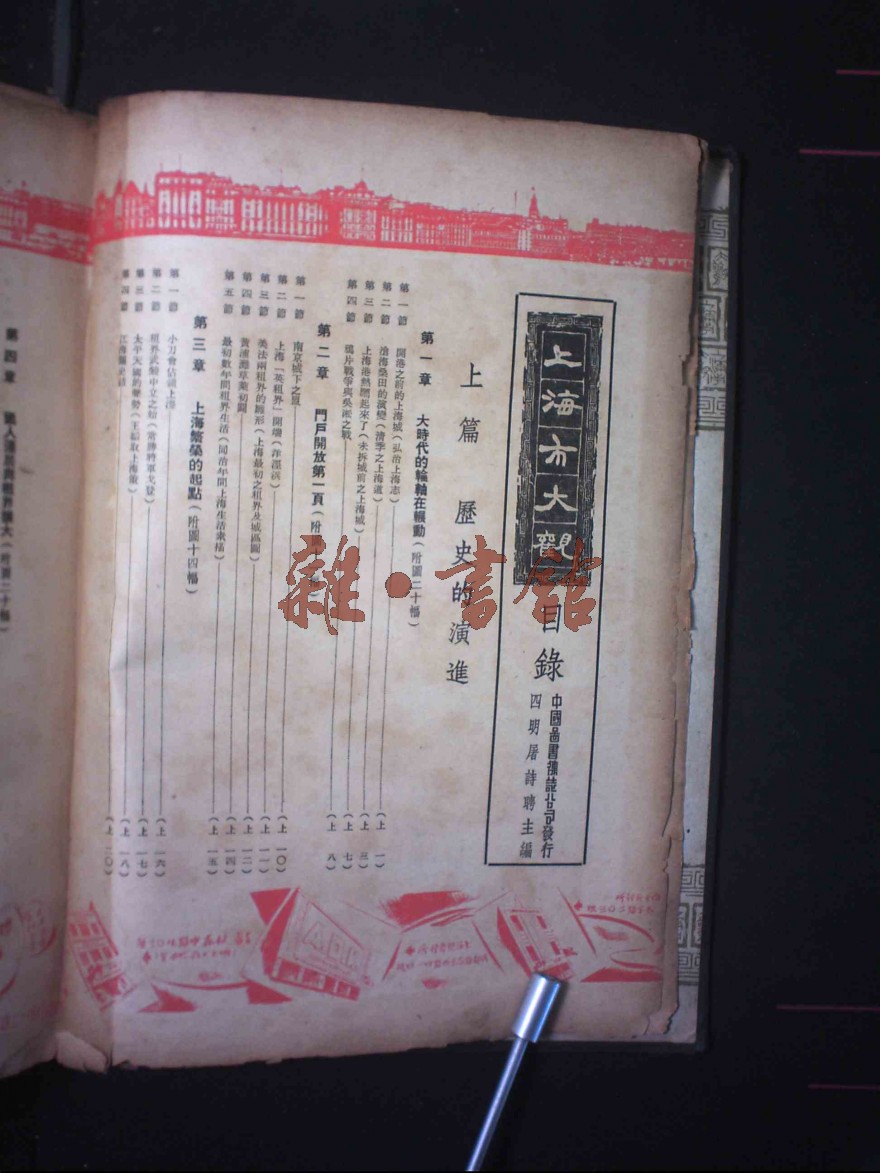 上海市大觀
目錄
中國圖書雜誌公司發行
四明屠詩聘主編
上篇 歷史的演進
第一章 大時代的輪軸在輾動(附圖二十幅)
第一節 開港之前的上海城(弘治上海志)(上 一)
第二節 滄海桑田的演變(清季之上海道)(上 三)
第三節 上海港熱鬧起來了(未拆城前之上海城)(上 七)
第四節 鴉片戰爭與吳淞之戰(上 八)
第二章 門戶開放第一頁(附圖
第一節 南京城下之盟(上 一〇)
第二節 上海「英租界」開埠(洋涇浜)(上 一一)
第三節 美法兩租界的雛形(上海最初之租界及城區圖)(上 一二)
第四節 黃浦灘草萊初闢(上 一四)
第五節 最初數年間租界生活(同治年間上海生活素描)(上 一五)
第三章 上海繁榮的起點(附圖十四幅)
第一節 小刀會佔領上海(上 一六)
第二節 租界武裝中立之始(常勝將軍戈登)(上 一七)
第三節 太平天國的聲勢(上 一八)
第四節 江海關(上 二〇)
第四章
雜·書館